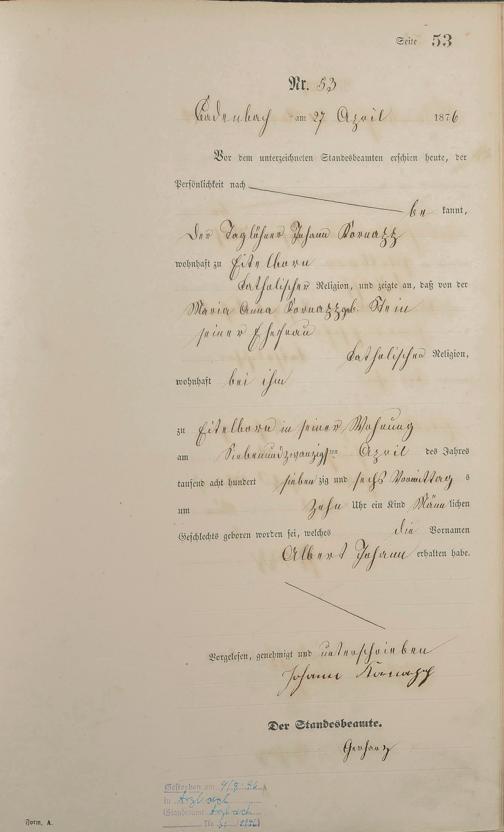 Seite 53
Nr. 53
Cadenbach am 27 April 1876
Vor dem unterzeichneten Standesbeamten erschien heute, der
Persönlichkeit nach
be kannt,
der Taglöhner Johann
wohnhaft zu Eitelborn
katholischer Religion, und zeigte an, daß von der
Maria Anna geb. Stein
seiner Ehefrau
katholischer Religion,
wohnhaft bei ihm
zu Eitelborn in seiner Wohnung
am Siebenundzwanzigsten April des Jahres
tausend acht hundert sieben zig und sechs Vormittag s
um zehn Uhr ein Kind Männ lichen
Geschlechts geboren worden sei, welches die Vornamen
Albert Johann erhalten habe.
Vorgelesen, genehmigt und unterschrieben
Johann
Der Standesbeamte.
Gestorben am
in Arzbach
Standesamt Arzbach
Nr.
Form. A.